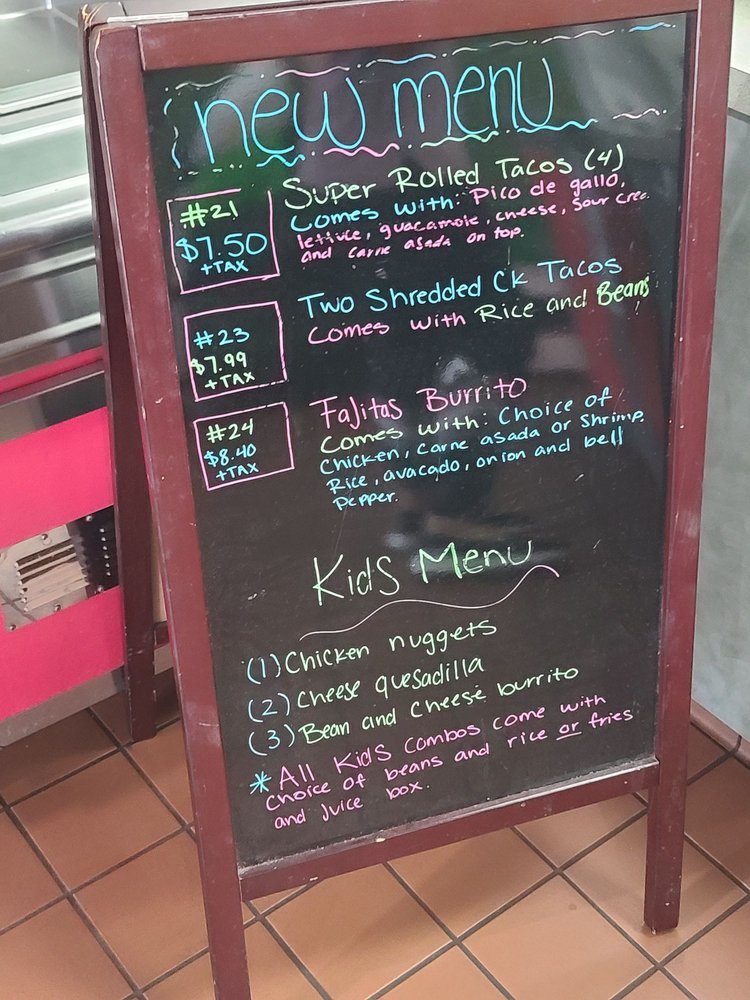 new menu
#21
$7.50
+TAX
Super Rolled Tacos (4)
Comes with: Pico de gallo,
lettuce, guacamole, cheese, sour crea
and carne asada on top.
#23
$7.99
+TAX
Two Shredded Ck Tacos
Comes with Rice and Beans
#24
$8.40
+TAX
Fajitas Burrito
Comes with: Choice of
Chicken, carne asada or Shrimp.
Rice, avacado, onion and bell
Pepper.
Kids Menu
(1) Chicken nuggets
(2) Cheese quesadilla
(3) Bean and Cheese burrito
* All Kids Combos come with
choice of beans and rice or fries
and juice box.